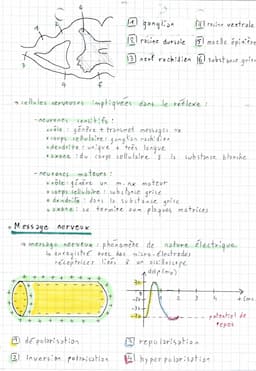 1 ganglion
2 racine dorsale
3 nerf rachidien
4 racine ventrale
5 moelle épinière
6 substance grise
→ cellules nerveuses impliquées dans le réflexe :
- neurones sensitifs :
rôle : génère + transmet messages nx
corps cellulaire : ganglion rachidien
dendrite : unique + très longue
axone : du corps cellulaire à la substance blanche
- neurones moteurs :
rôle : génère un m. nx moteur
corps cellulaire : substance grise
dendrite : dans la substance grise
axone : se termine aux plaques motrices
• Message nerveux
→ message nerveux : phénomène de nature électrique.
↳ enregistré avec des micro-électrodes
réceptrices liées à un oscilloscope
ddp (mv)
1 2 3 4
potentiel de
repos
1 dépolarisation
2 inversion polarisation
3 repolarisation
4 hyperpolarisation